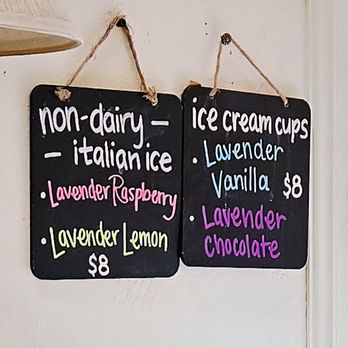 non-dairy —
— italian ice
• Lavender Raspberry
• Lavender Lemon
$8
ice cream cups
• Lavender
Vanilla $8
• Lavender
Chocolate